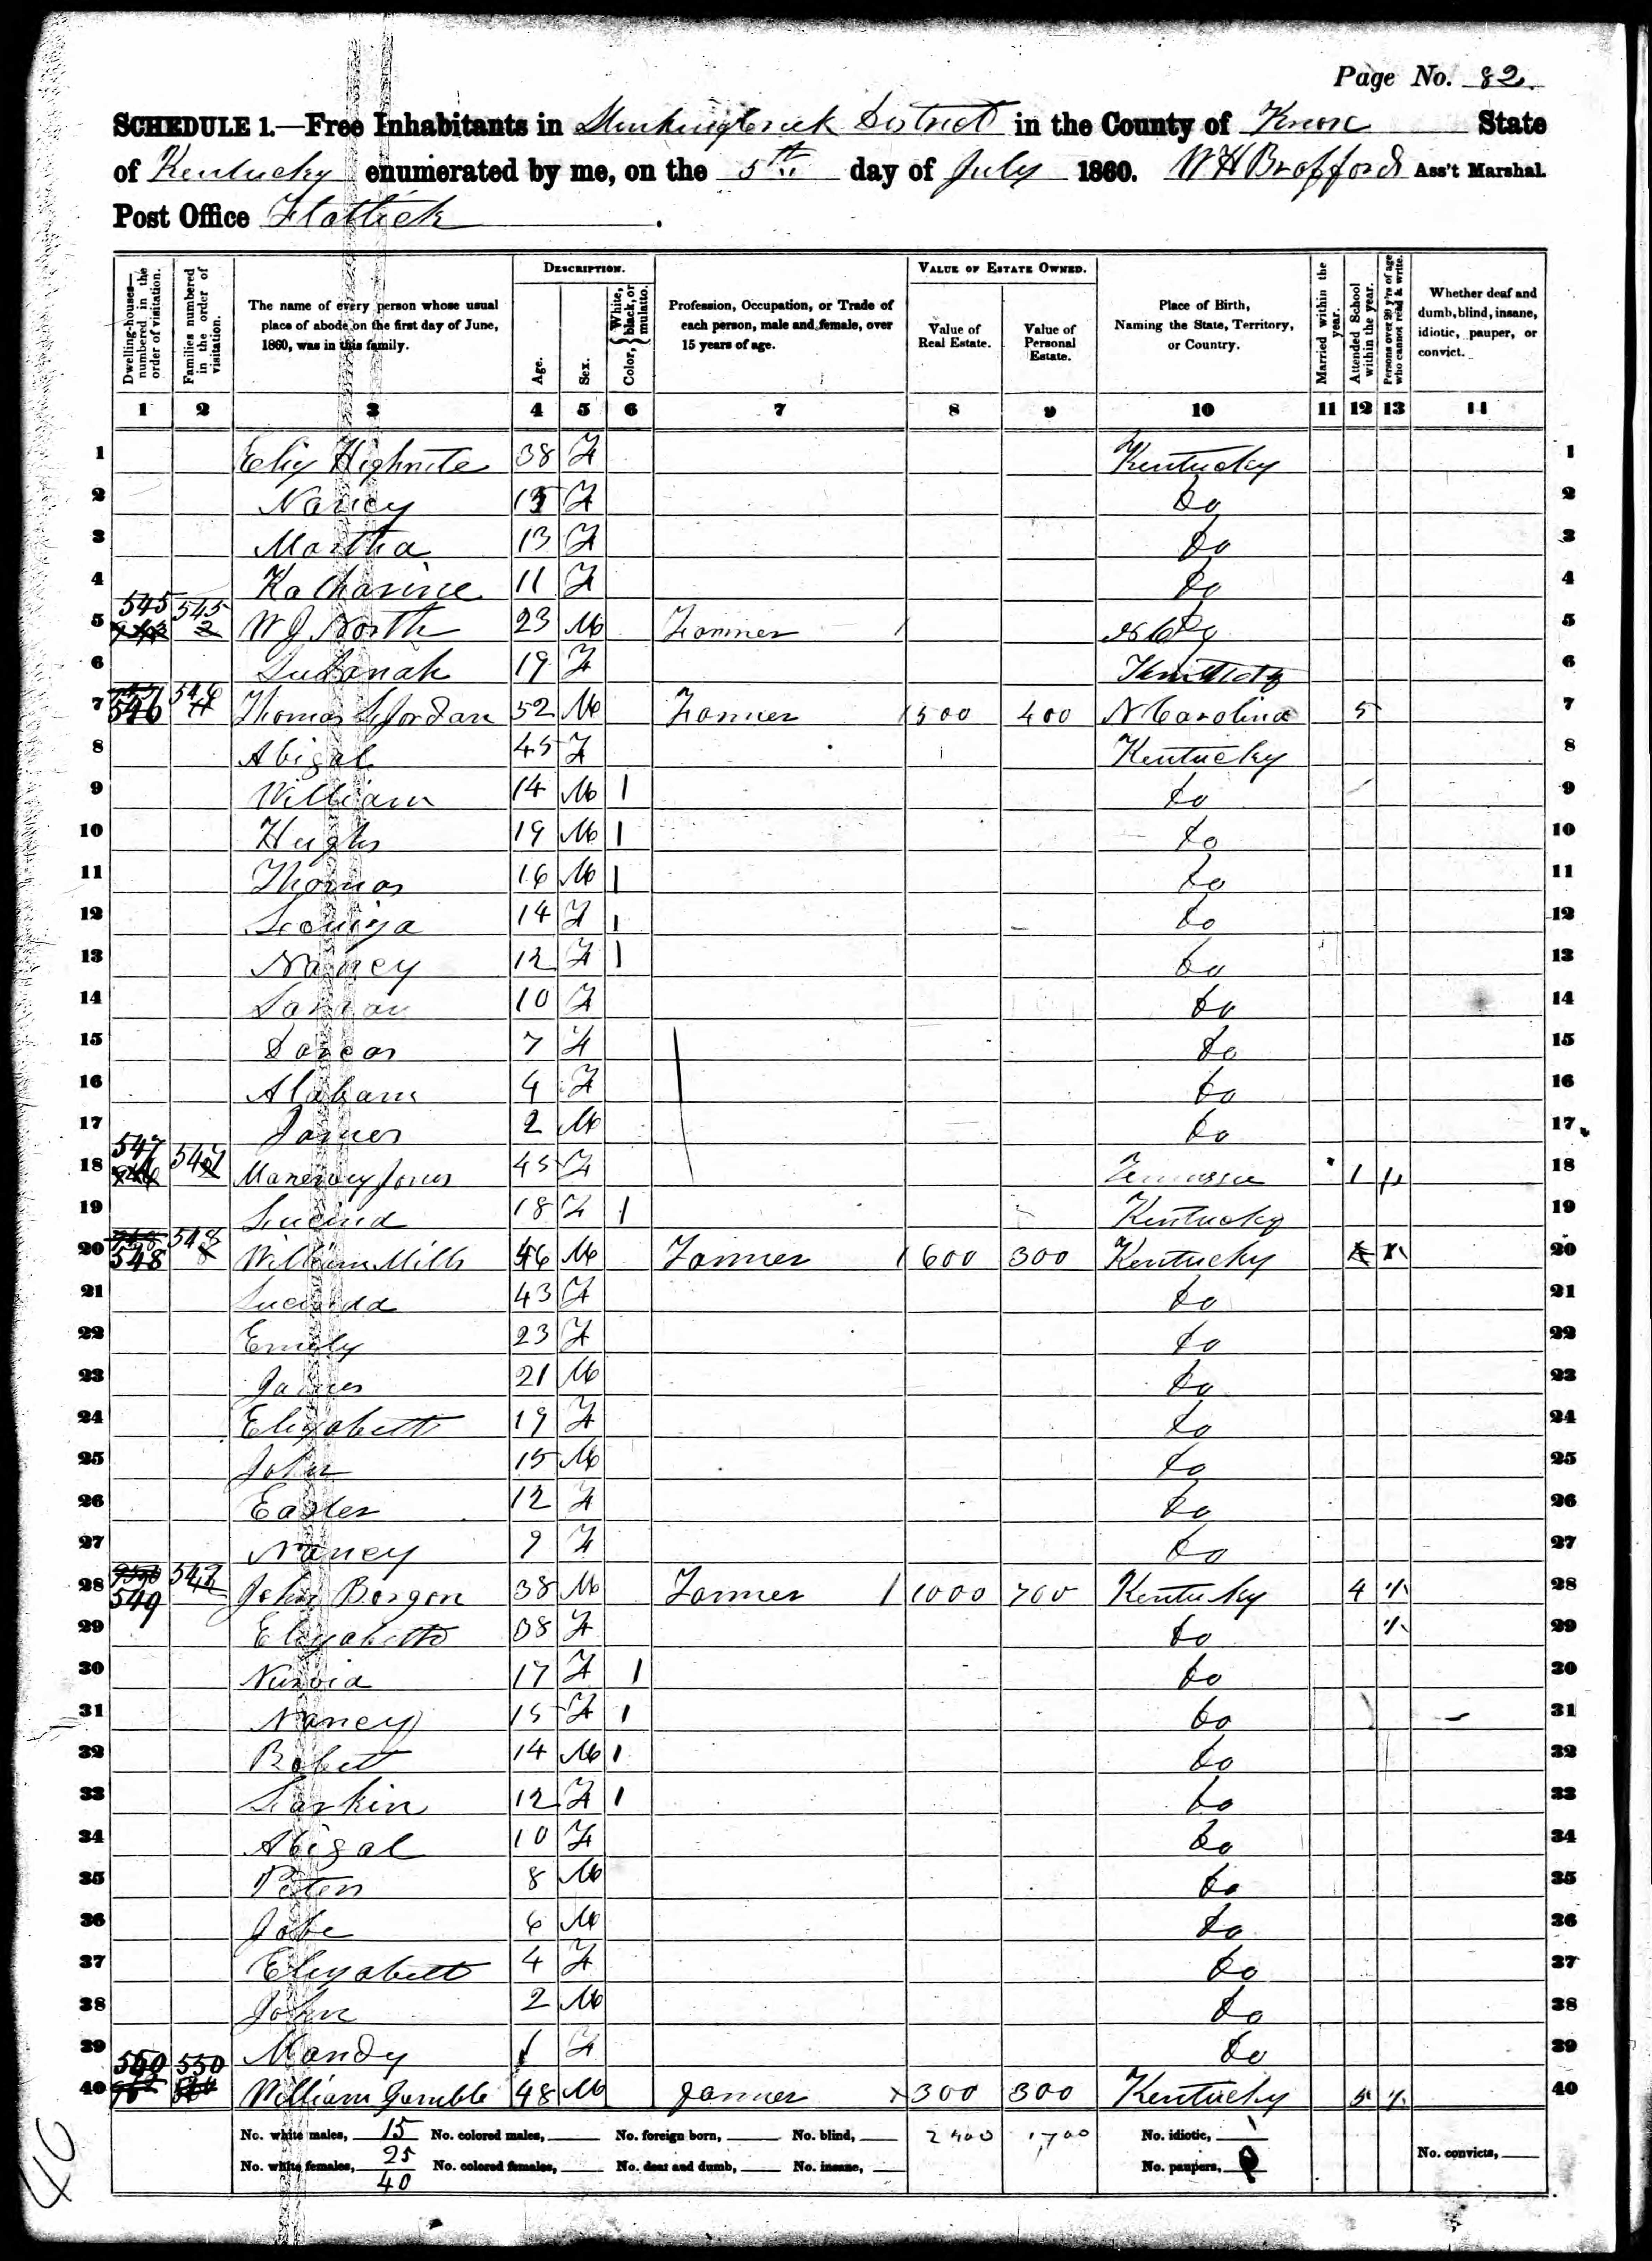 Page No. 82.
SCHEDULE 1.—Free Inhabitants in District in the County of Knox State
of Kentucky enumerated by me, on the 5th day of July 1860. W H Brofford Ass't Marshal.
Post Office Flatlick.
Dwelling-houses—numbered in the order of visitation.
Families numbered in the order of visitation.
The name of every person whose usual place of abode on the first day of June, 1860, was in this family.
DESCRIPTION.
Age.
Sex.
Color, { White, black, or mulatto.
Profession, Occupation, or Trade of each person, male and female, over 15 years of age.
VALUE OF ESTATE OWNED.
Value of Real Estate.
Value of Personal Estate.
Place of Birth, Naming the State, Territory, or Country.
Married within the year.
Attended School within the year.
Persons over 20 y'rs of age who cannot read & write.
Whether deaf and dumb, blind, insane, idiotic, pauper, or convict.
1 2 3 4 5 6 7 8 9 10 11 12 13 14
1 Eliz Highnite 38 F Kentucky 1
2 Nancy 15 F Do 2
3 Martha 13 F Do 3
4 Katharine 11 F Do 4
5 545 545 W J North 23 M Farmer 5
6 Susanah 19 F 6
7 546 546 Thomas L Jordan 52 M Farmer 500 400 N Carolina 5 7
8 Abigal 45 F Kentucky 8
9 William 14 M 1 Do 9
10 Hughs 19 M 1 Do 10
11 Thomas 16 M 1 Do 11
12 14 F 1 Do 12
13 Nancy 12 F 1 Do 13
14 10 F Do 14
15 Darcas 7 F Do 15
16 4 F Do 16
17 James 2 M Do 17
18 547 547 Jones 45 F 1 18
19 Lucind 18 F 1 Kentucky 19
20 548 548 William Mills 46 M Farmer 600 300 Kentucky 20
21 Lucinda 43 F Do 21
22 Emily 23 F Do 22
23 James 21 M Do 23
24 Elizabeth 19 F Do 24
25 John 15 M Do 25
26 Easter 12 F Do 26
27 Nancy 9 F Do 27
28 549 549 John Borgon 38 M Farmer 1000 700 Kentucky 4 28
29 Elizabeth 38 F Do 29
30 17 F 1 Do 30
31 Nancy 15 F 1 Do 31
32 Robett 14 M 1 Do 32
33 Larkin 12 F 1 Do 33
34 Abigal 10 F Do 34
35 Peter 8 M Do 35
36 Jobe 6 M Do 36
37 Elizabeth 4 F Do 37
38 John 2 M Do 38
39 Mandy 1 F Do 39
40 550 550 William Gamble 48 M Farmer 300 300 Kentucky 5 40
No. white males, 15 No. colored males, No. foreign born, No. blind, 2400 1700 No. idiotic,
No. white females, 25 No. colored females, No. deaf and dumb, No. insane, No. paupers, No. convicts,
40
40